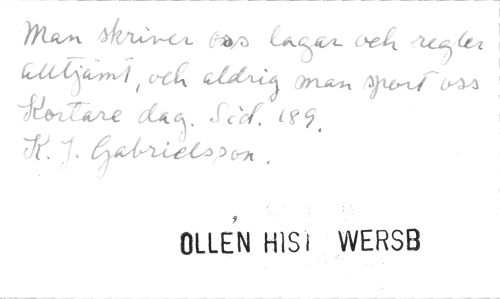 Man skriver oss lagar och regler
alltjämt, och aldrig man sport oss
Kortare dag. Sid. 189.
K. J. Gabrielsson.
OLLÉN HIST WERSB